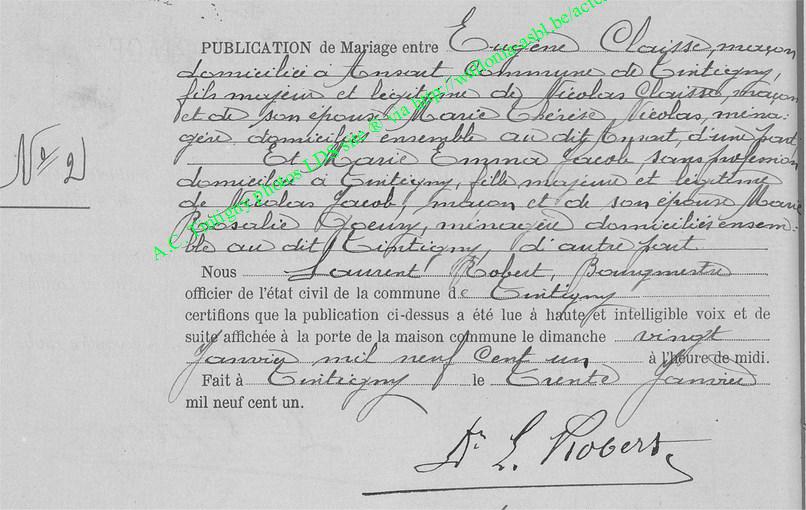 PUBLICATION de Mariage entre Eugène Claisse, maçon
domicilié à Ansart Commune de Tintigny,
fils majeur et légitime de Nicolas Claisse, maçon
et de son épouse Marie Thérèse Nicolas, ména-
gère domiciliés ensemble au dit Ansart, d'une part
Et Marie Emma Jacob, sans profession
domiciliée à Tintigny, fille majeure et légitime
de Nicolas Jacob, maçon et de son épouse Marie
Rosalie Goeury, ménagère domiciliés ensem-
ble au dit Tintigny, d'autre part.
N° 2
Nous Laurent Robert, Bourgmestre
officier de l'état civil de la commune de Tintigny
certifions que la publication ci-dessus a été lue à haute et intelligible voix et de
suite affichée à la porte de la maison commune le dimanche vingt
Janvier mil neuf cent un à l'heure de midi.
Fait à Tintigny le trente Janvier
mil neuf cent un.
Dr L. Robert
A.C. Tintigny photos LDS site ® via http://wallonia-asbl.be/acte